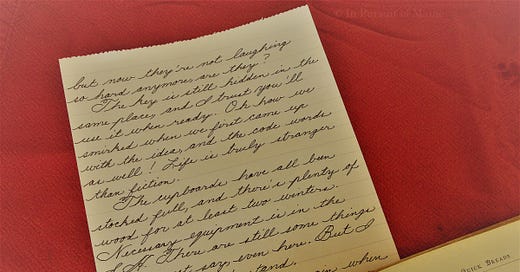 © In Pursuit of Maine
but now they're not laughing
so hard anymore, are they?
The key is still hidden in the
same place, and I trust you'll
use it when ready. Oh how we
smirked when we first came up
with the idea, and the code words
as well! Life is truly stranger
than fiction.
The cupboards have all been
stocked full, and there's plenty of
wood for at least two winters.
Necessary equipment is in the
There are still some things
say, even here. But I
when
QUICK BREADS